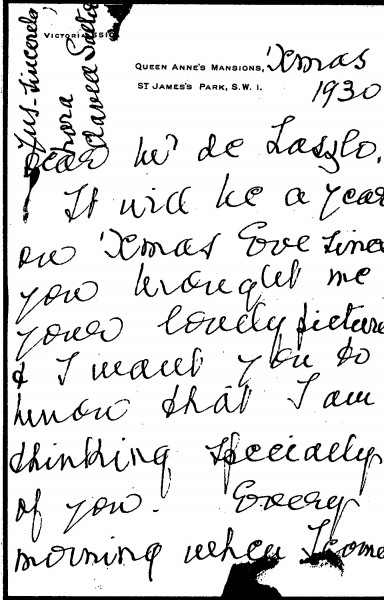 VICTORIA 551
QUEEN ANNE'S MANSIONS,
ST JAMES'S PARK, S.W.1.
'Xmas
1930
Dear Mr de Laszlo.
It will be a year
on 'Xmas Eve since
you brought me
your lovely picture
& I want you to
know that I am
thinking specially
of you. Every
morning when I come
Yrs-sincerely